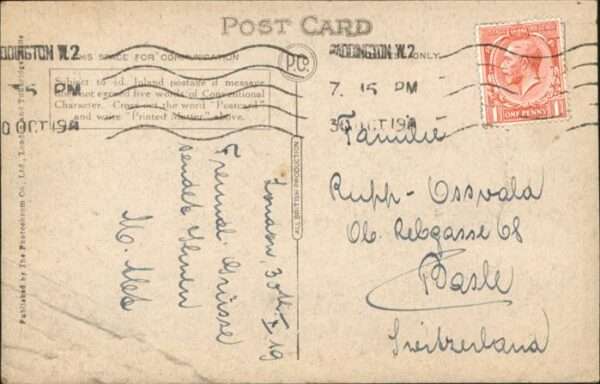 POST CARD
THIS SPACE FOR COMMUNICATION
ONLY.
P.C.
PADDINGTON W.2
7. 15 PM
30 OCT 19
PADDINGTON W.2
7. 15 PM
30 OCT 19
Subject to ½d. Inland postage if message
does not exceed five words of Conventional
Character. Cross out the word "Postcard"
and write "Printed Matter" above.
ONE PENNY
ALL BRITISH PRODUCTION
Published by The Photochrom Co., Ltd., London and Tunbridge Wells
London, 30. X 19
Freundl. Grüsse
sendet Ihnen
Familie
Rupp-Osswald
Ob. Rebgasse 68
Basle
Switzerland